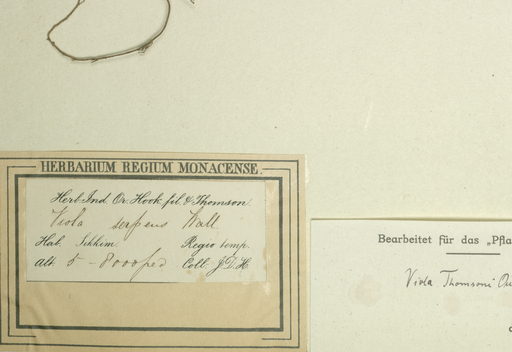 HERBARIUM REGIUM MONACENSE.
Herb. Ind. Or. Hook. fil. & Thomson.
Viola serpens Wall.
Hab. Sikkim. Regio temp.
Alt. 5 - 8000 ped Coll. J.D.H.
Bearbeitet für das „Pfla
Viola Thomsoni Ou